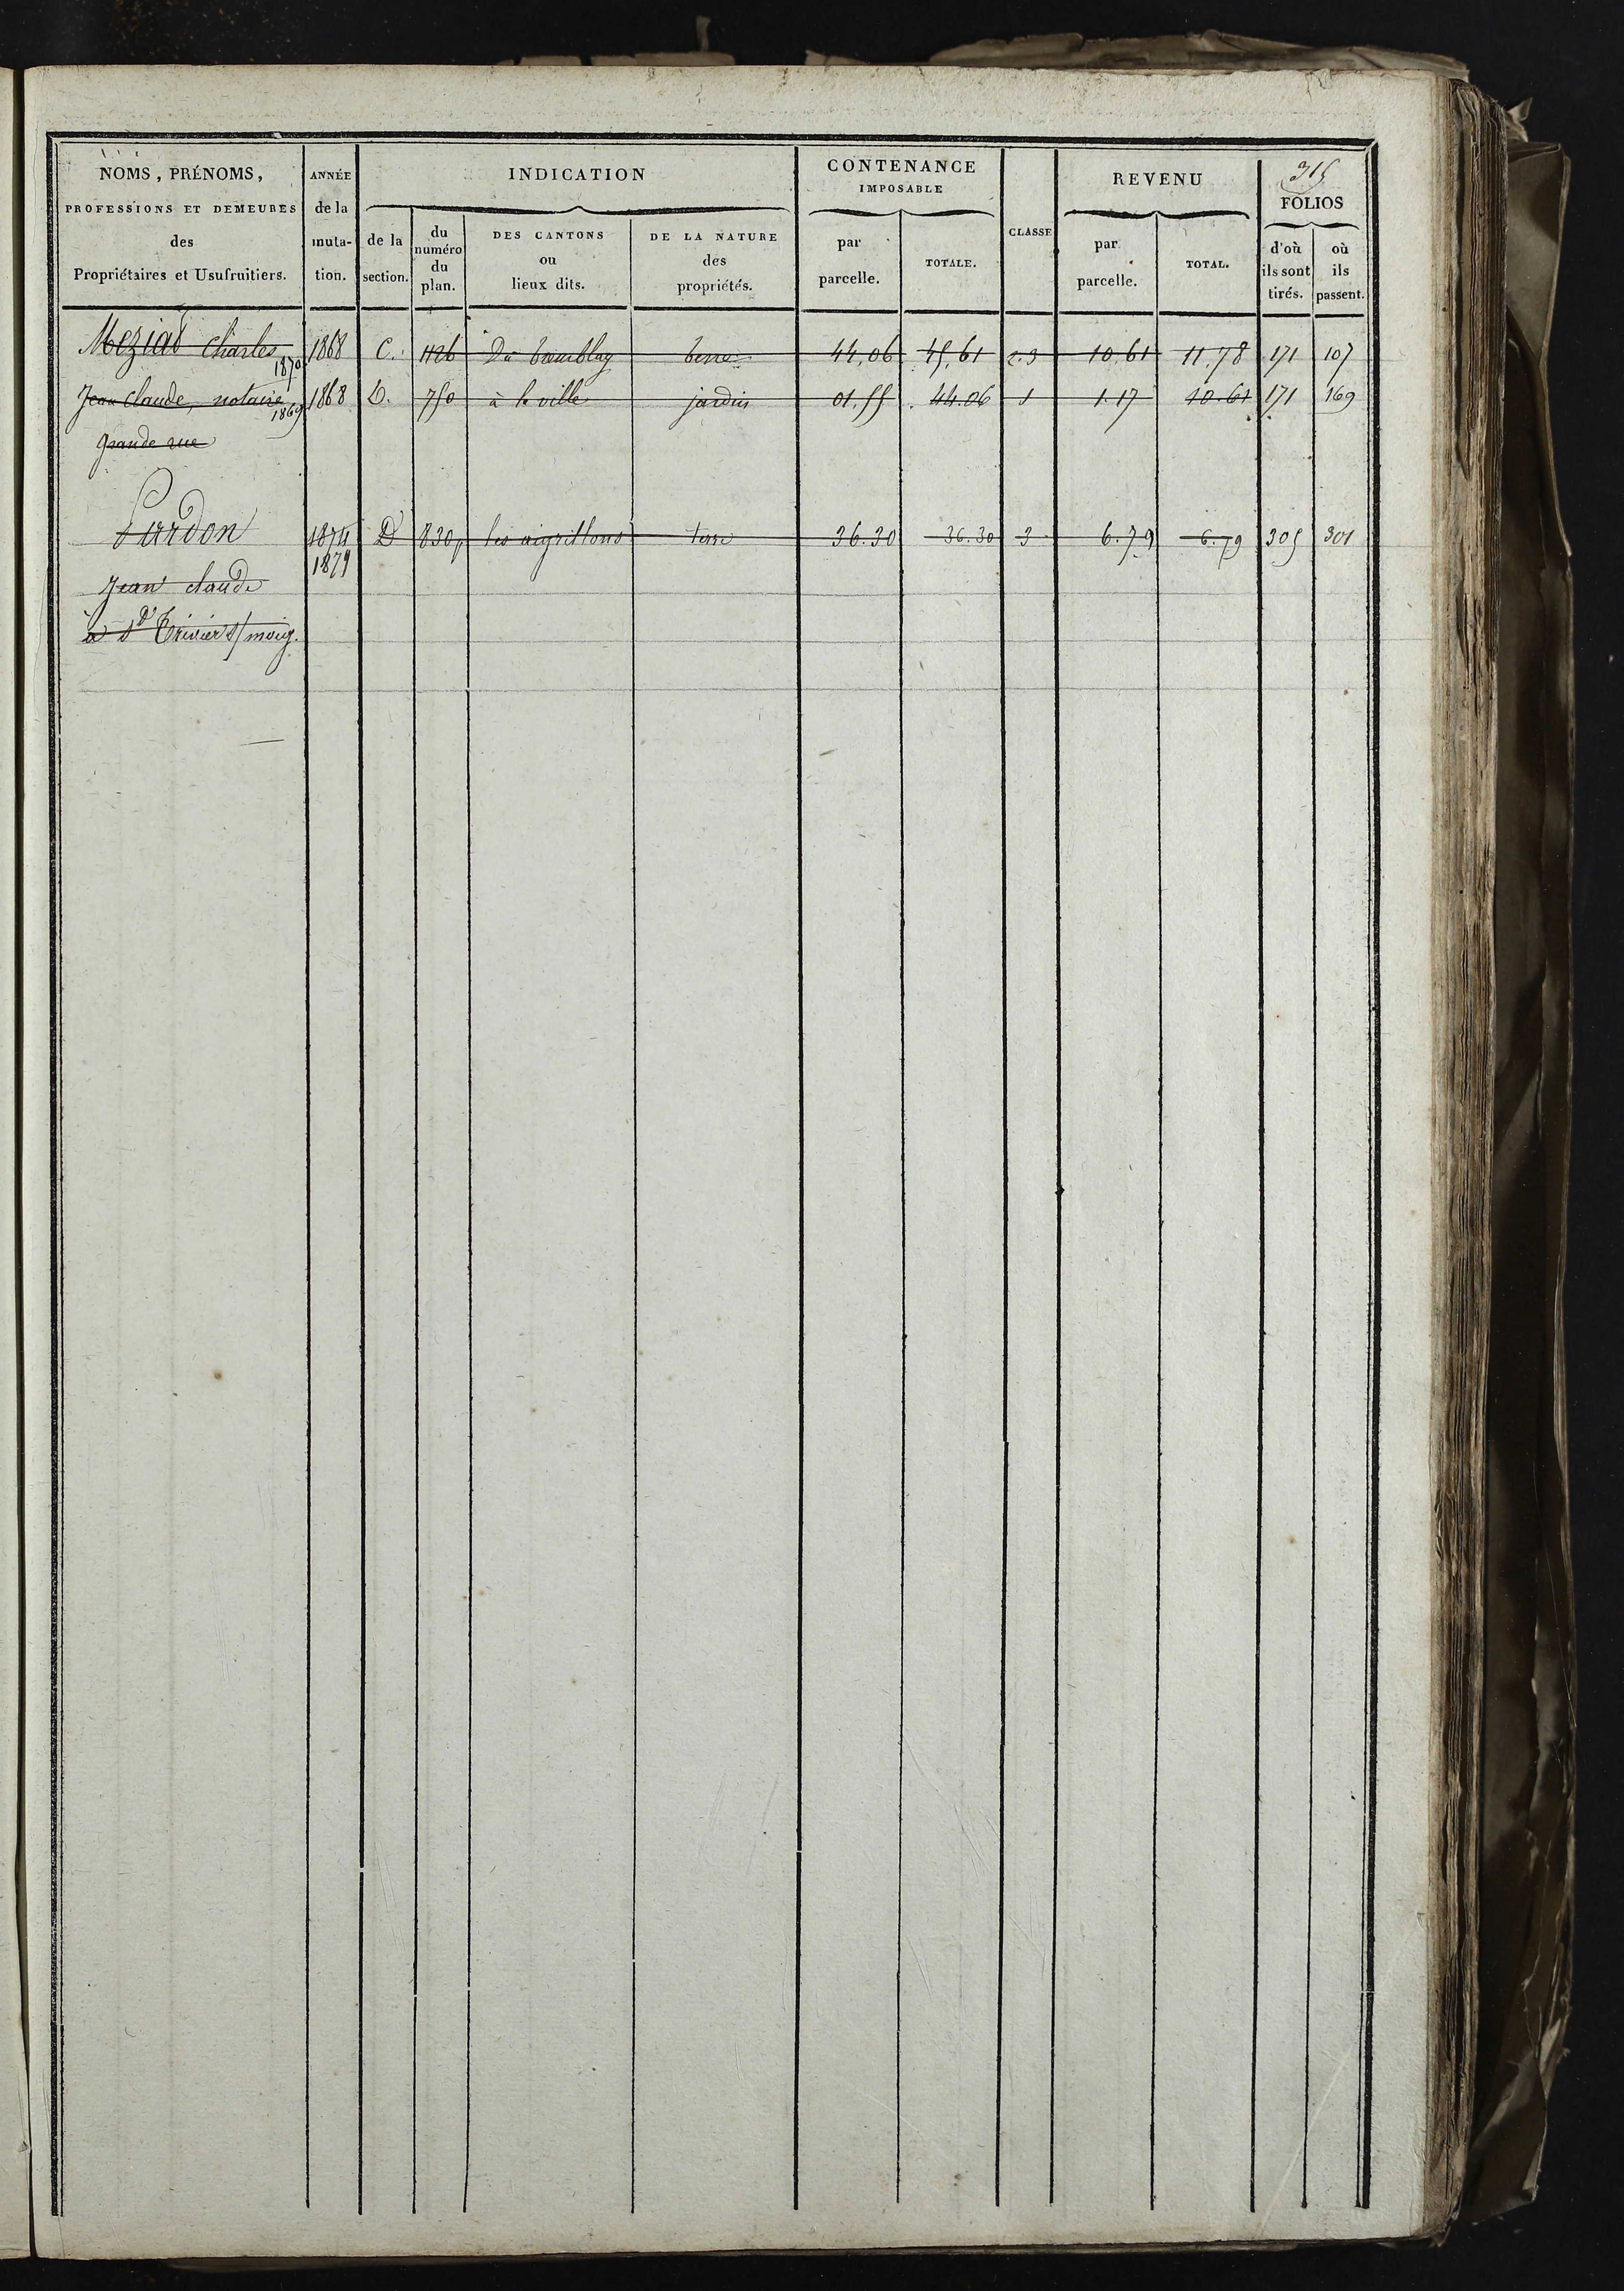 315
NOMS, PRÉNOMS, PROFESSIONS ET DEMEURES des Propriétaires et Usufruitiers.
ANNÉE de la muta-tion.
INDICATION
de la section.
du numéro du plan.
DES CANTONS ou lieux dits.
DE LA NATURE des propriétés.
CONTENANCE IMPOSABLE
par parcelle.
TOTALE.
CLASSE
REVENU
par parcelle.
TOTAL.
FOLIOS
d'où ils sont tirés.
où ils passent.
Meziat Charles 1870 1868 C. 1126 Du tremblay terre 44,06 45,61 2.3 10,61 11,78 171 107
Jean claude, notaire 1869 1868 D. 750 à la ville jardin 01,55 44.06 1 1.17 10.61 171 169
grande rue
Purdon 1874 D 830p les aigrillons terre 36.30 36.30 3 6.79 6.79 305 301
1879
Jean claude
à St Trivier s/moig.